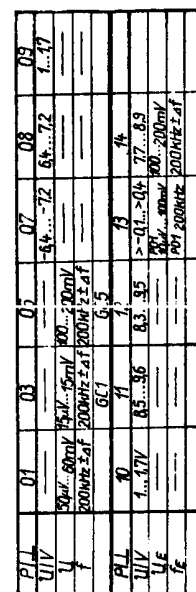 P/⊥ 01 03 07 08 09
U/V — — — -6,4...-7,2 6,4...7,2 1...1,7
U 50µV...60mV 15µV...15mV 100...200mV — — —
f 200kHz±Δf 200kHz±Δf 200kHz±Δf — — —
GC1
P/⊥ 10 11 13 14
U/V 1...1,7V 8,5...9,6 8,3...9,5 >-0,1...>-0,4 7,7...8,9
U_E — — — P01 100mV 100...200mV
f_E — — — P01 200kHz 200kHz±Δf